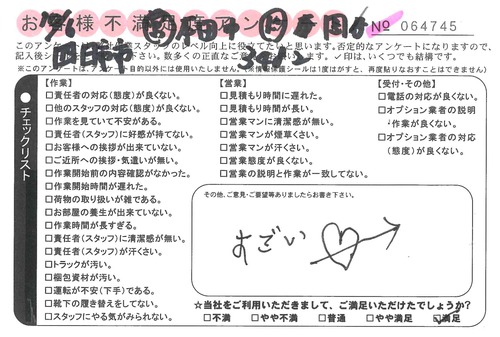 お客様不満足度アンケート № 064745
このアンケートは
スタッフのレベル向上に役立てたいと思います。否定的なアンケートになりますので、
※このアンケートは、アンケート目的以外には使用いたしません。
チェックリスト
【作業】
□責任者の対応(態度)が良くない。
□他のスタッフの対応(態度)が良くない。
□作業を見ていて不安がある。
□責任者(スタッフ)に好感が持てない。
□お客様への挨拶が出来ていない。
□ご近所への挨拶・気遣いが無い。
□作業開始前の内容確認がなかった。
□作業開始時間が遅れた。
□荷物の取り扱いが雑である。
□お部屋の養生が出来ていない。
□作業時間が長すぎる。
□責任者(スタッフ)に清潔感が無い。
□責任者(スタッフ)が汗くさい。
□トラックが汚い。
□梱包資材が汚い。
□運転が不安(下手)である。
□靴下の履き替えをしてない。
□スタッフにやる気がみられない。
【営業】
□見積もり時間に遅れた。
□見積もり時間が長い。
□営業マンに清潔感が無い。
□営業マンが煙草くさい。
□営業マンが汗くさい。
□営業態度が良くない。
□営業の説明と作業が一致してない。
【受付・その他】
□電話の対応が良くない。
□オプション業者の説明・作業が良くない。
□オプション業者の対応(態度)が良くない。
その他、ご意見・ご要望等ありましたらお書き下さい。
すごい
☆当社をご利用いただきまして、ご満足いただけたでしょうか?
□不満 □やや不満 □普通 □やや満足 ☑満足